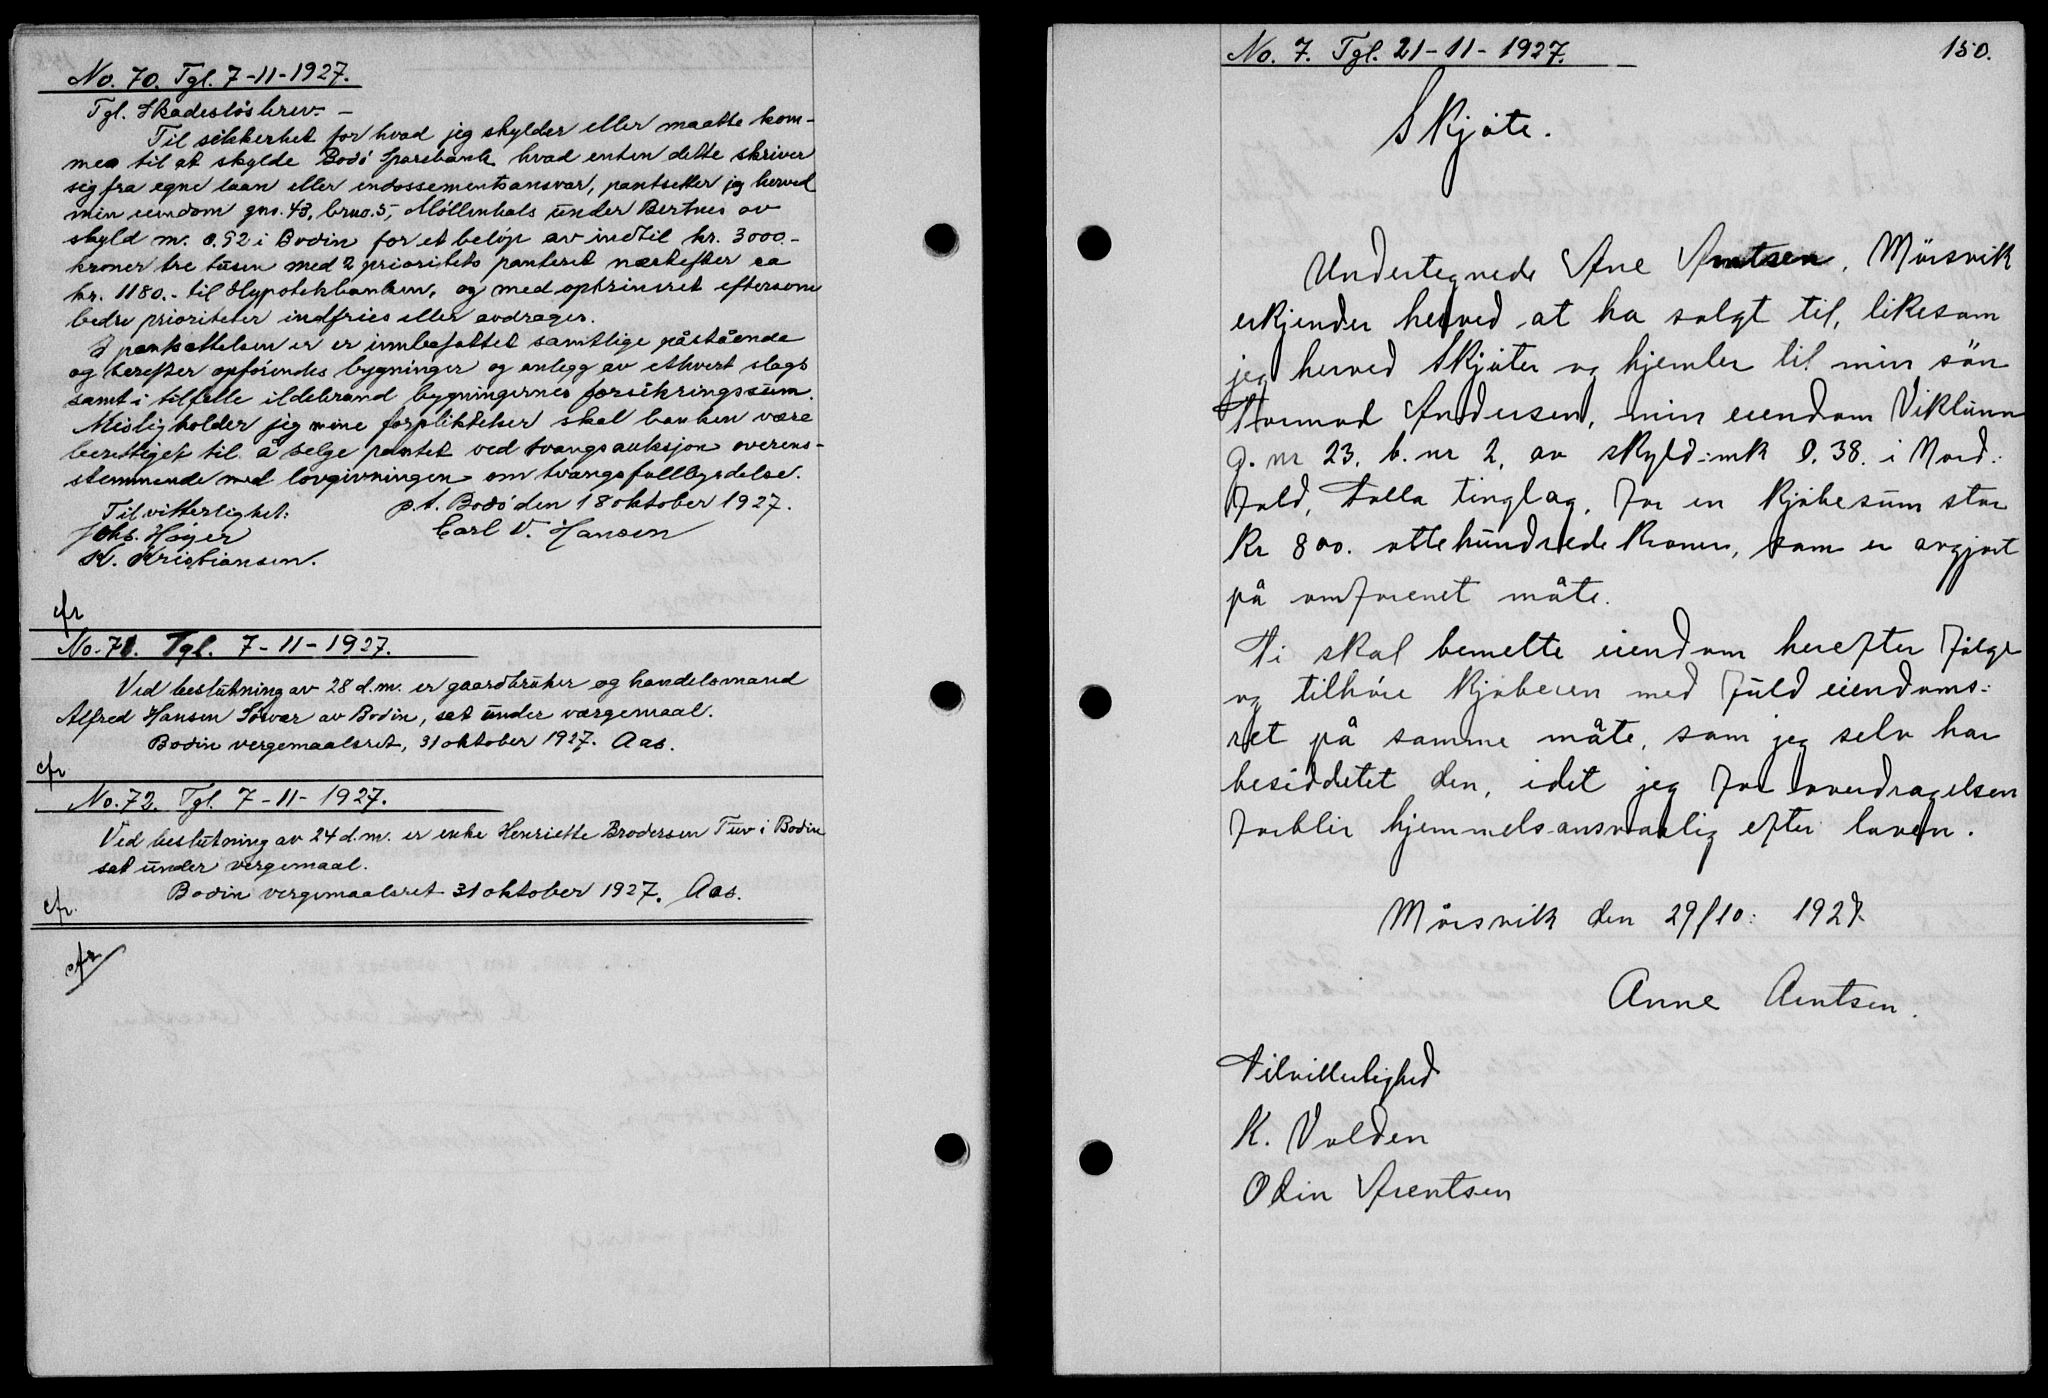 No. 70. Tgl. 7-11-1927.
Tgl. Skadesløsbrev. -
Til sikkerhet for hvad jeg skylder eller maatte kom-
me til at skylde Bodö Sparebank hvad enten dette skriver
sig fra egne laan eller endossementsansvar, pantsetter jeg herved
min eiendom gno. 43, bruo. 5, Möllenhals under Bertnes av
skyld m. 0.92 i Bodin for et belöp av indtil kr. 3000.-
kroner tre tusen med 2 prioritets panteret næstefter ca
kr. 1180.- til Hypotekbanken, og med optrinsret eftersom
bedre prioriteter indfries eller avdrages.
I pantsettelsen er er innbefattet samtlige påstående
og herefter opförendes bygninger og anlegg av ethvert slags
samt i tilfelle ildebrand bygningernes forsikringssum.
Misligholder jeg mine forpliktelser skal banken være
berettiget til å selge pantet ved tvangsauksjon overens-
stemmende med lovgivningen om tvangsfullbyrdelse.
p.t. Bodö den 18 oktober 1927.
Til vitterlighet:
Carl V. Hansen
Johs. Høyer
K. Kristiansen.
cfr
No. 71. Tgl. 7-11-1927.
Ved beslutning av 28 d.m. er gaardbruker og handelsmand
Alfred Hansen Sörvær av Bodin, sat under værgemaal.
Bodin vergemaalsret, 31 oktober 1927. Aas.
cfr
No. 72. Tgl. 7-11-1927.
Ved beslutning av 24 d.m. er enke Henriette Brodersen Tuv i Bodin
sat under vergemaal.
Bodin vergemaalsret 31 oktober 1927. Aas.
cfr.
cfr
No. 7. Tgl. 21-11-1927.
150.
Skjöte.
Undertegnede Ane Arntsen, Mörsvik
erkjender herved at ha solgt til, likesom
jeg herved skjöter og hjemler til min sön
Tormod Andersen, min eiendom Viklunn
g. nr 23. b. nr 2, av skyld: mk 0.38. i Nord:
fold, Folla tinglag, for en kjöbesum stor
Kr 800. ottehundrede kroner, som er avgjort
på omforenet måte.
Ti skal bemelte eiendom herefter fölge
og tilhöre kjöberen med fuld eiendoms:
ret på samme måte, som jeg selv har
besiddetet den, idet jeg for overdragelsen
forblir hjemmelsansvarlig efter loven.
Mörsvik den 29/10: 1927.
Anne Arntsen.
Tilvitterlighed
K. Valden
Odin Arentsen